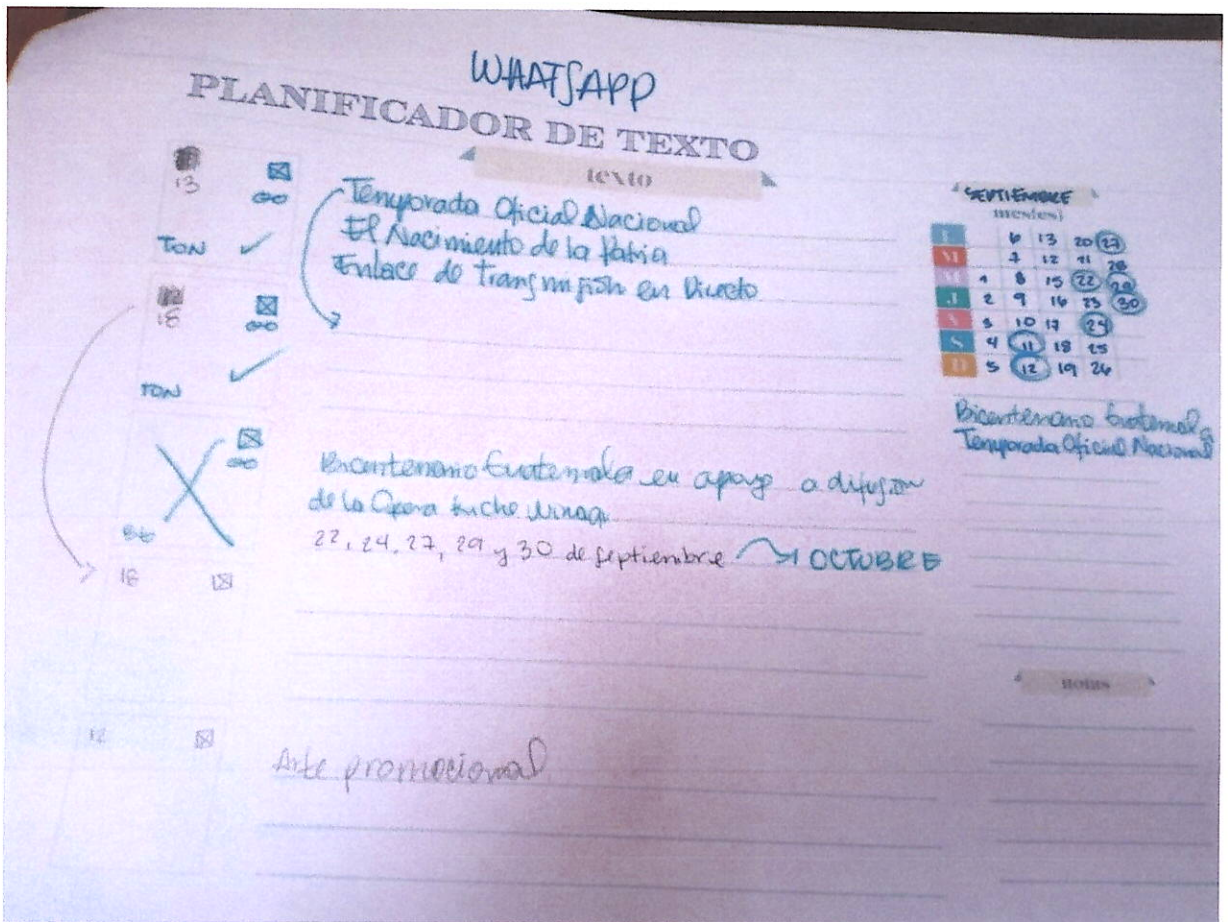 WHATSAPP
PLANIFICADOR DE TEXTO
texto
13
TON
Temporada Oficial Nacional
El Nacimiento de la Patria
Enlace de transmisión en Directo
18
TON
Bicentenario Guatemala en apoyo a difusión
de la Opera
22, 24, 27, 29 y 30 de septiembre OCTUBRE
18
12
Arte promocional
SEPTIEMBRE
mes(es)
L 6 13 20 27
M 7 12 21 28
M 1 8 15 22 29
J 2 9 16 23 30
V 3 10 17 24
S 4 11 18 25
D 5 12 19 26
Bicentenario Guatemala
Temporada Oficial Nacional
notas